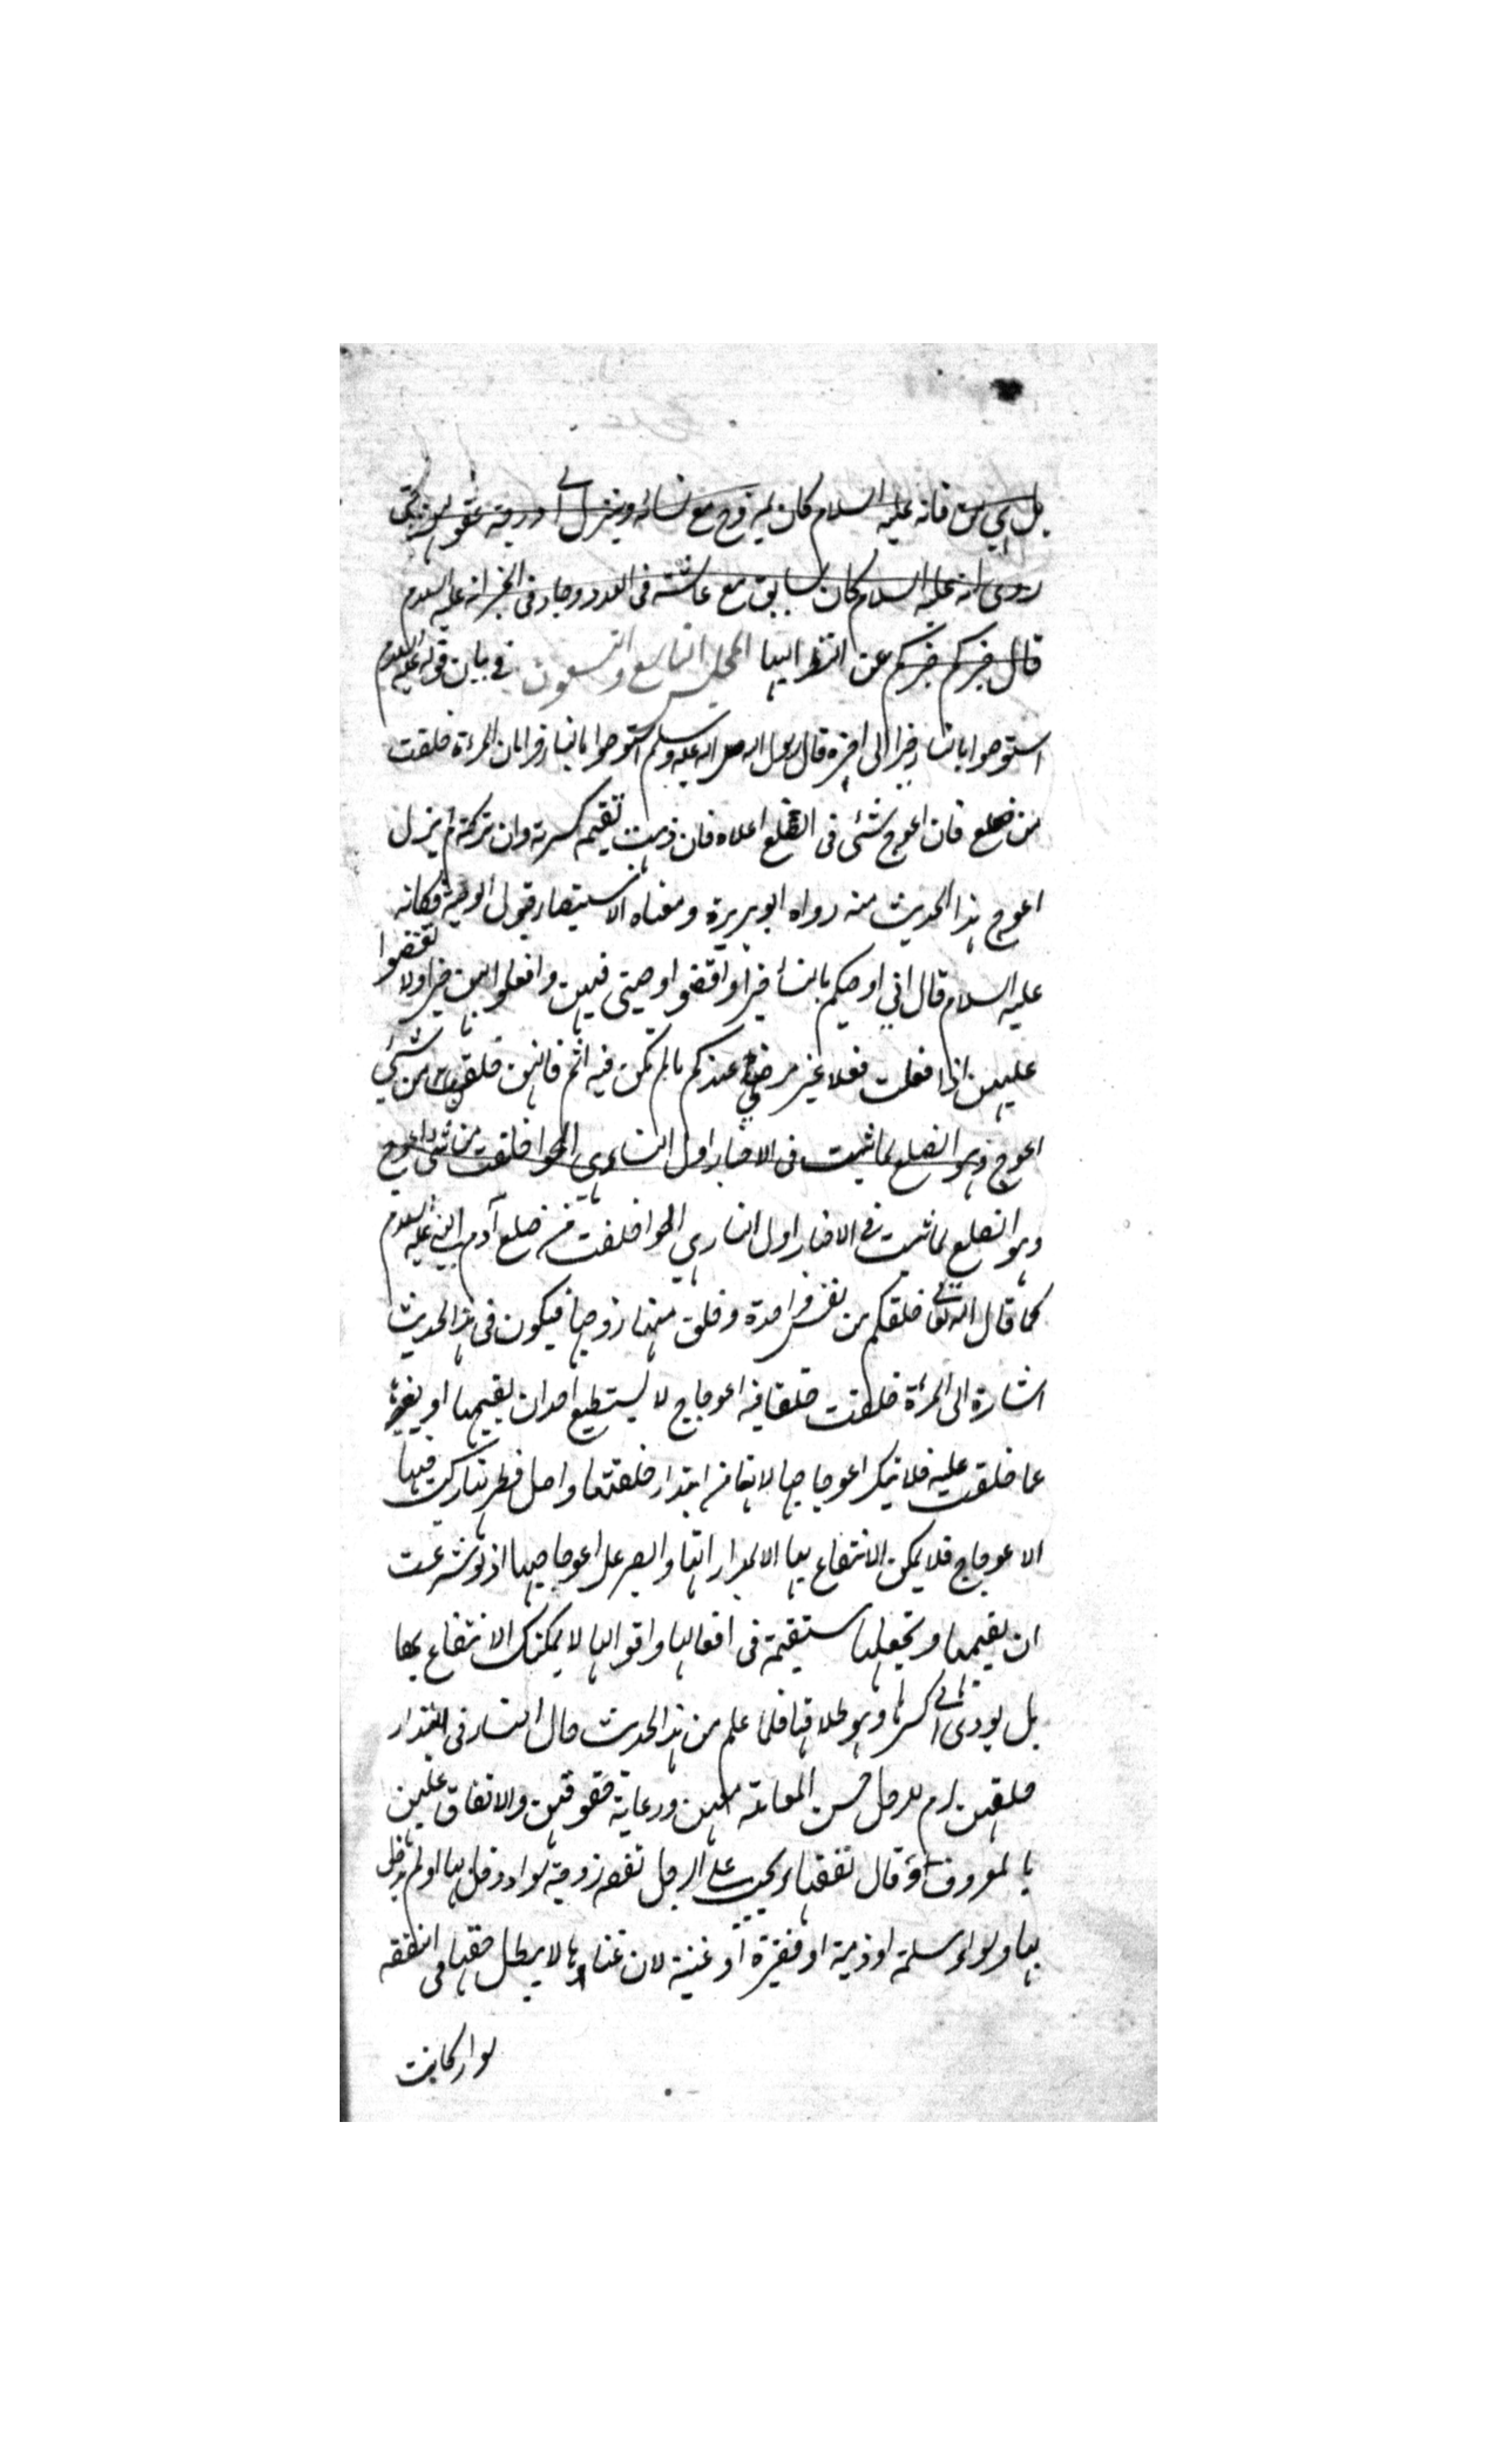 بل هي من فانه عليه السلام كان يمزح مع نسائه وينزل الى درجة عقولهن حتى
روى انه عليه السلام كان يسابق مع عائشة فى العدو وجاء فى الخبر انه عليه السلام
قال خيركم خيركم عن النظر اليها المجلس التاسع والتسعون في بيان قوله عليه السلام
استوصوا بالنساء خيرا الى اخره قال رسول الله صلى الله عليه وسلم استوصوا بالنساء خيرا فان المرءة خلقت
من ضلع فان اعوج شئى فى الضلع اعلاه فان ذهبت تقيمه كسرته وان تركته لم يزل
اعوج هذا الحديث منه رواه ابو هريرة ومعناه الاستيصاء قبول الوصية فكانه
عليه السلام قال انى اوصيكم بالنساء خيرا واقضوا وصيتى فيهن وافعلوا بهن خيرا ولا تغضبوا
عليهن اذا فعلت فعلا غير مرضى عندكم ما لم تكن فيه اثم فانهن خلقن من شئى
اعوج وهو الضلع لما ثبت فى الاخبار اول النساء وهى الحوا خلقت من شئى اعوج
وهو الضلع لما ثبت فى الاخبار اول النساء وهى الحوا خلقت من ضلع آدم النبى عليه السلام
كما قال الله تعالى خلقكم من نفس واحدة وخلق منها زوجها فيكون فى هذا الحديث
اشارة الى المرءة خلقت خلقا فيه اعوجاج لا يستطيع احد ان يقيمها او يغيرها
عما خلقت عليه فلا ينكر اعوجاجها لانها من ابتداء خلقتها واصل فطرتها ركبت فيها
الاعوجاج فلا يمكن الانتفاع بها الا بمداراتها والصبر على اعوجاجها اذ لو شرعت
ان يقيمها وتجعلها مستقيمة فى افعالها واقوالها لا يمكنك الانتفاع بها
بل يودى الى كسرها وهو طلاقها فلما علم من هذا الحديث حال النساء فى ابتداء
خلقهن لزم للرجل حسن المعاملة معهن ورعاية حقوقهن والانفاق عليهن
بالمعروف قال يجب على الرجل نفقة زوجته سواء دخل بها او لم يدخل
بها وسواء مسلمة او ذمية او فقيرة او غنية لان غناءها لا يبطل حقها فى النفقة
سواء كانت